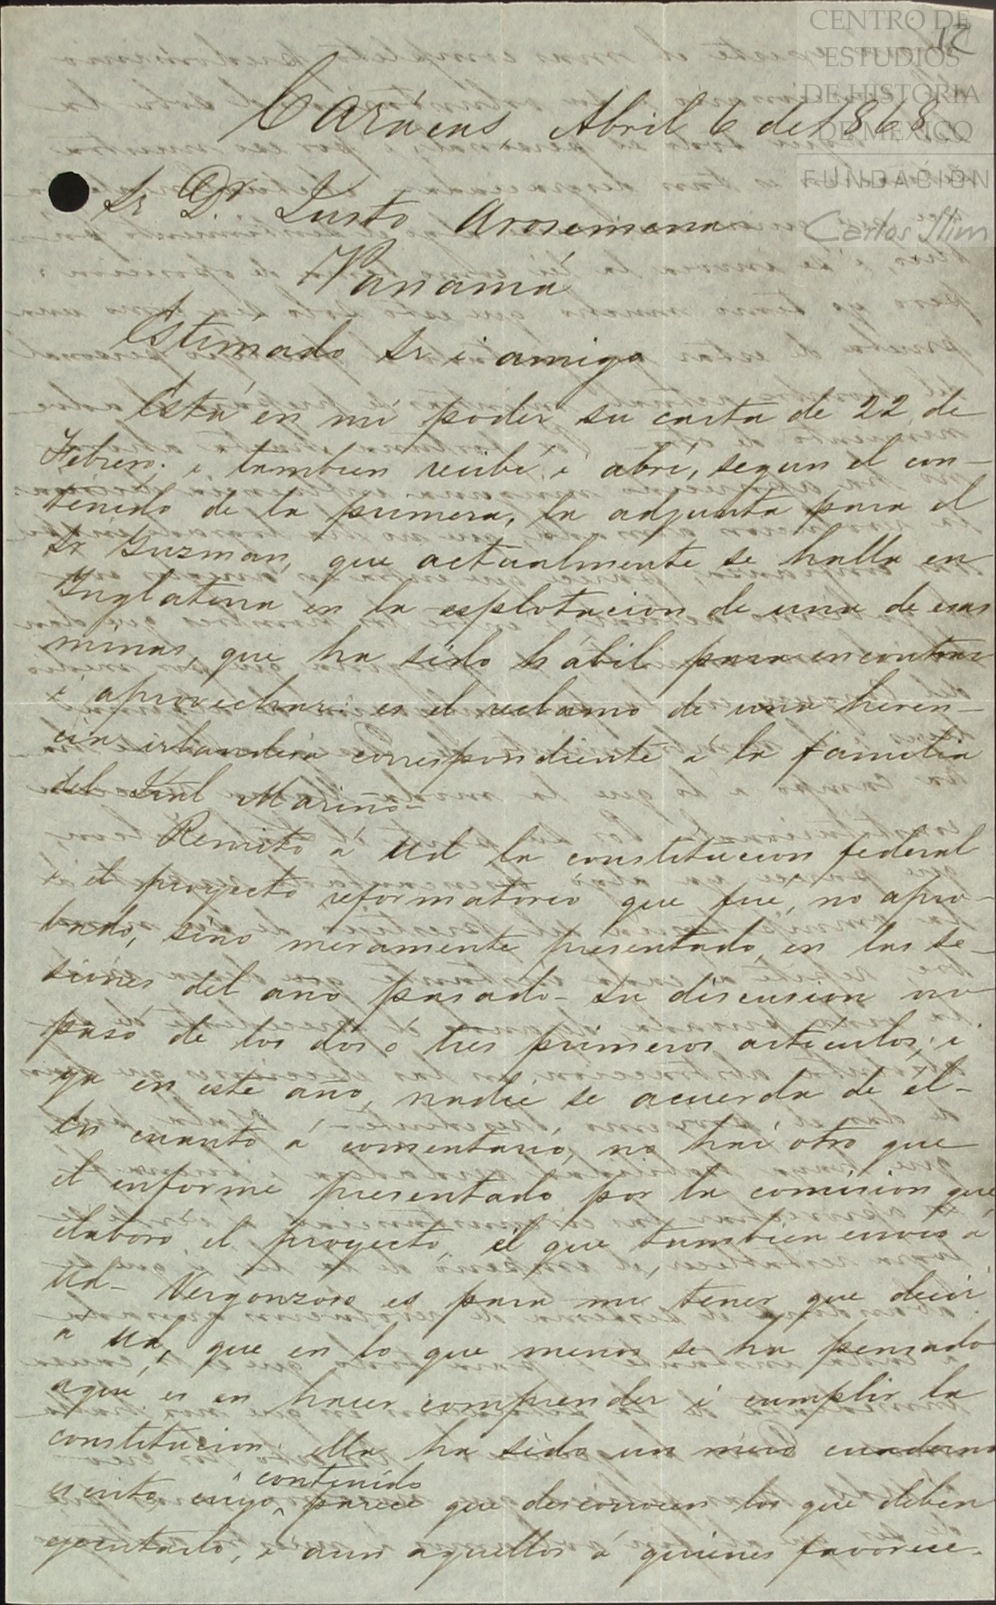 12
CENTRO DE
ESTUDIOS
DE HISTORIA
DE MÉXICO
FUNDACIÓN
Carlos Slim
Carácas, Abril 6 de 1868
Sr Dr Justo Arosemena
Panamá
Estimado Sr i amigo
Está en mi poder su carta de 22 de
Febrero; i tambien recibí, i abrí, segun el con-
tenido de la primera, la adjunta para el
Sr Guzman, que actualmente se halla en
Inglaterra en la esplotacion de una de esas
minas, que ha sido hábil para encontrar
i aprovechar: es el reclamo de una heren-
cia irlandesa correspondiente á la familia
del Jral Mariño-
Remito á Ud la constitucion federal
i el proyecto reformatorio que fué, no apro-
bado, sino meramente presentado en las se-
siones del año pasado- Su discusion no
pasó de los dos ó tres primeros artículos; i
ya en este año, nadie se acuerda de él-
En cuanto á comentario, no hai otro que
el informe presentado por la comision que
elaboró el proyecto, el que tambien envio á
Ud- Vergonzoso es para mi tener que decir
a Ud, que en lo que menos se ha pensado
aquí es en hacer comprender i cumplir la
constitucion: ella ha sido un mero cuaderno
escrito cuyo contenido parece que desconocen los que deben
ejecutarlo, i aun aquellos á quienes favorece.